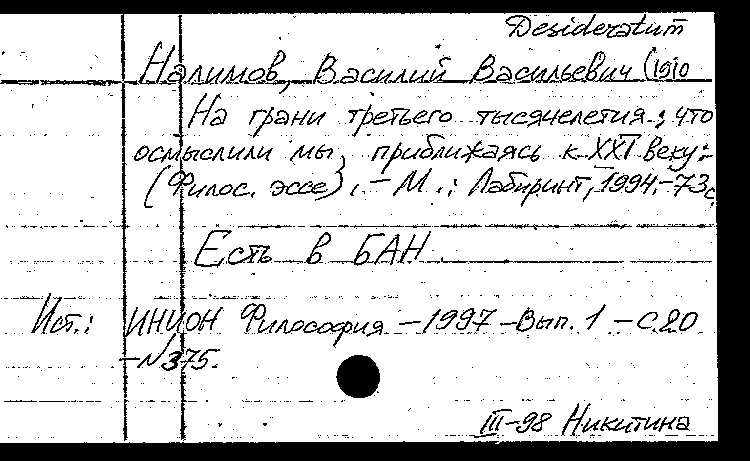 Desideratum
Налимов, Василий Васильевич (1910
На грани третьего тысячелетия: что
осмыслили мы, приближаясь к XXI веку:-
(Филос. эссе). - М.: Лабиринт, 1994.-73с
Есть в БАН.
Ист.: ИНИОН Философия - 1997 - Вып. 1 - С.20
- N375.
III-98 Никитина